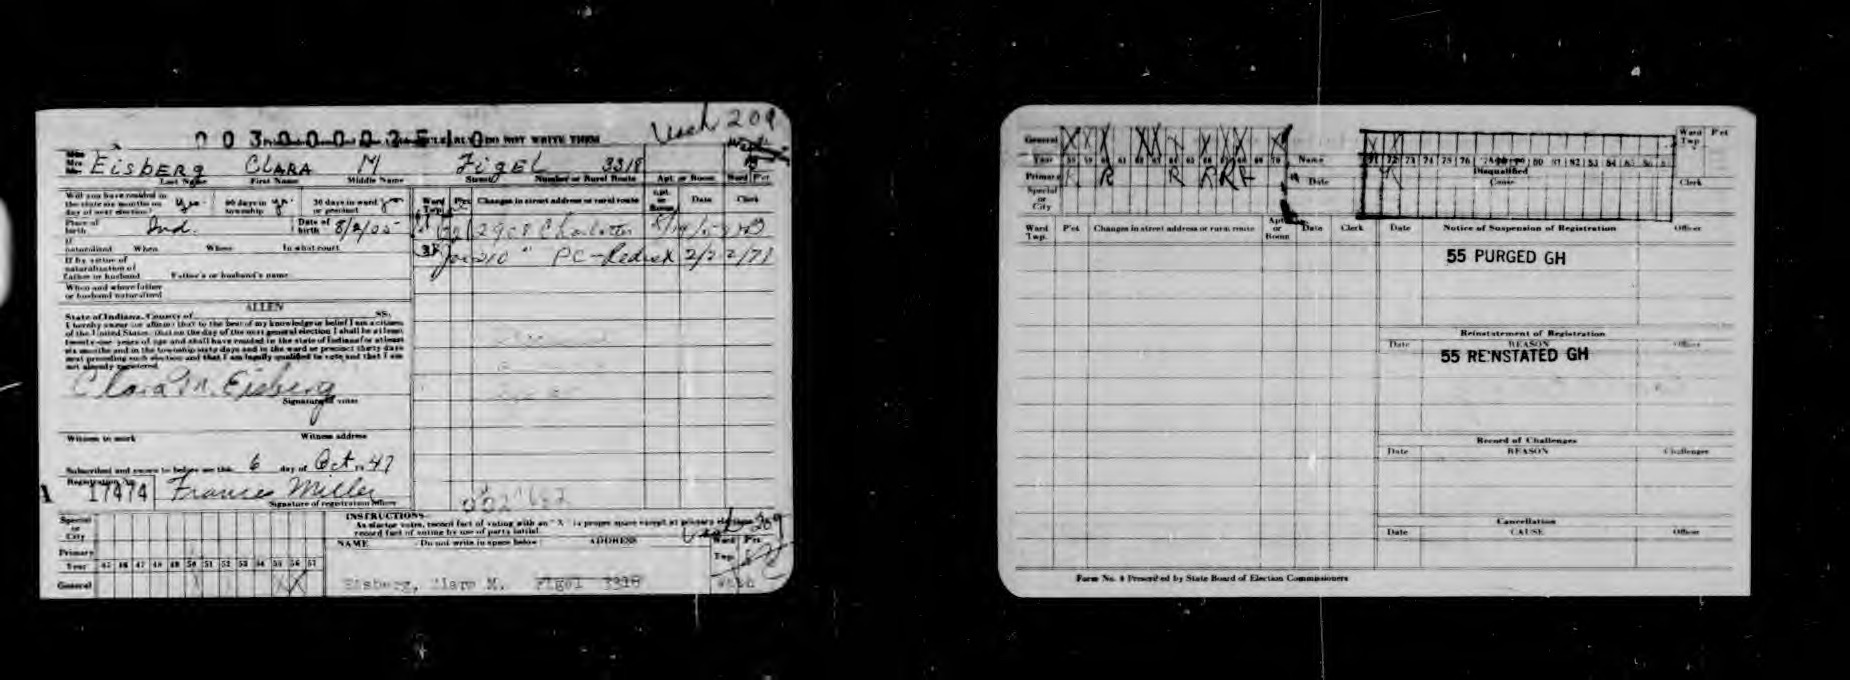 Wash 209
00300002510 CLEARLY DO NOT WRITE THEM
Miss
Mrs.
Mr. Eisberg CLARA M Figel 3318
Last Name First Name Middle Name Street Number or Rural Route Apt. or Room Ward Pct
Will you have resided in the state six months on day of next election? yes 60 days in township yes 30 days in ward or precinct yes
Place of birth Ind. Date of birth 8/2/05
If naturalized When Where In what court
If by virtue of naturalization of father or husband Father's or husband's name
When and where father or husband naturalized
ALLEN
State of Indiana, County of SS:
I hereby swear (or affirm) that to the best of my knowledge or belief I am a citizen
of the United States, that on the day of the next general election I shall be at least
twenty-one years of age and shall have resided in the state of Indiana for at least
six months and in the township sixty days and in the ward or precinct thirty days
next preceding such election and that I am legally qualified to vote and that I am
not already registered.
Clara M. Eisberg
Signature of voter
Witness to mark Witness address
Subscribed and sworn to before me this 6 day of Oct 19 47
Registration No.
17474 Frances Miller
Signature of registration officer
Ward Twp. Pct Changes in street address or rural route Apt. or Room Date Clerk
2908 Charlotte
38 210 " PC-Redist 2/22/71
Special or City
Primary
Year 45 46 47 48 49 50 51 52 53 54 55 56 57
General X X X
INSTRUCTIONS
As elector votes, record fact of voting with an "X" in proper space except at primary elections
record fact of voting by use of party initial.
NAME Do not write in space below ADDRESS Ward Twp. Pct.
Eisberg, Clara M. Figel 3318
Wash 209
General
Year 58 59 60 61 62 63 64 65 66 67 68 69 70 Name 71 72 73 74 75 76 80 81 82 83 84
Primary R R R R R R Date Disqualified Cause Clerk
Special or City
Ward Twp Pct
Ward Twp. Pct Changes in street address or rural route Apt. or Room Date Clerk Date Notice of Suspension of Registration Officer
55 PURGED GH
Reinstatement of Registration
Date REASON Officer
55 REINSTATED GH
Record of Challenges
Date REASON Challenger
Cancellation
Date CAUSE Officer
Form No. 4 Prescribed by State Board of Election Commissioners